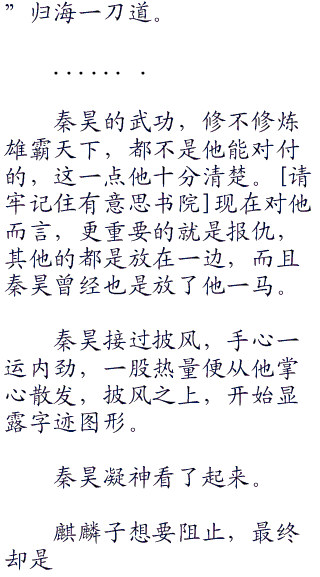 ”归海一刀道。
......．
秦昊的武功，修不修炼
雄霸天下，都不是他能对付
的，这一点他十分清楚。[请
牢记住有意思书院]现在对他
而言，更重要的就是报仇，
其他的都是放在一边，而且
秦昊曾经也是放了他一马。
秦昊接过披风，手心一
运内劲，一股热量便从他掌
心散发，披风之上，开始显
露字迹图形。
秦昊凝神看了起来。
麒麟子想要阻止，最终
却是